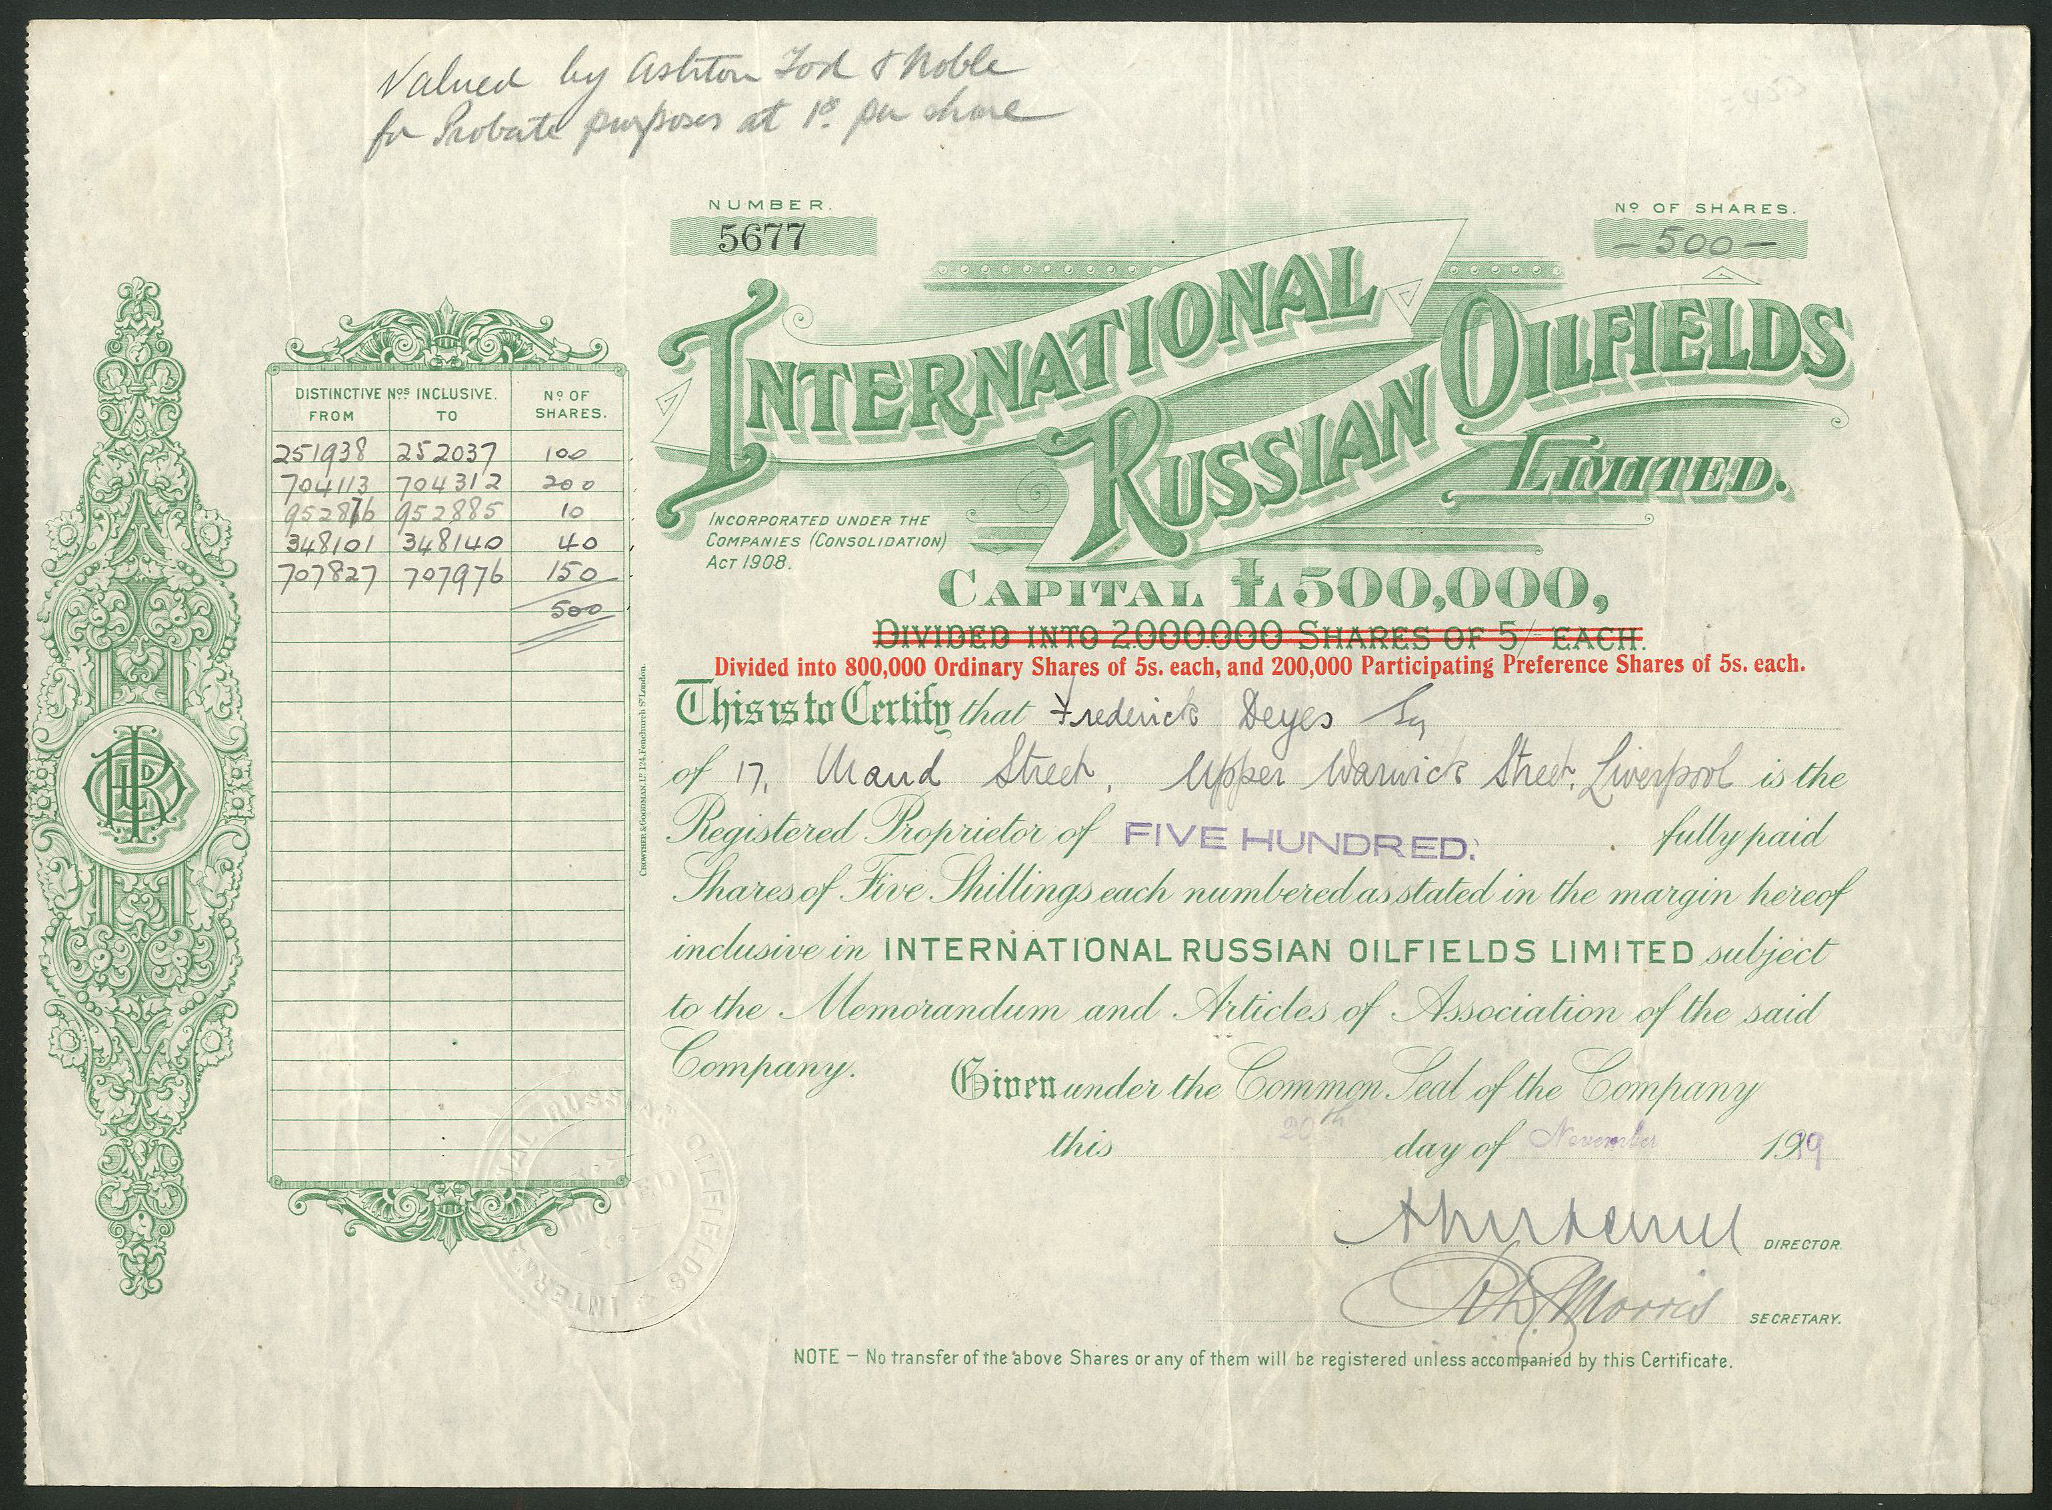 Valued by Ashton Tod & Noble
for Probate purposes at 1s. per share
NUMBER.
5677
No OF SHARES.
— 500 —
INTERNATIONAL
RUSSIAN OILFIELDS
LIMITED.
INCORPORATED UNDER THE
COMPANIES (CONSOLIDATION)
ACT 1908.
CAPITAL £500,000,
DIVIDED INTO 2.000.000 SHARES OF 5/- EACH.
Divided into 800,000 Ordinary Shares of 5s. each, and 200,000 Participating Preference Shares of 5s. each.
DISTINCTIVE Nos INCLUSIVE. No OF
FROM TO SHARES.
251938 252037 100
704113 704312 200
952876 952885 10
348101 348140 40
707827 707976 150
500
CROWTHER & GOODMAN, LD 124, Fenchurch St London.
This is to Certify that Frederick Deyes Esq
of 17, Maud Street, Upper Warwick Street, Liverpool is the
Registered Proprietor of FIVE HUNDRED. fully paid
Shares of Five Shillings each numbered as stated in the margin hereof
inclusive in INTERNATIONAL RUSSIAN OILFIELDS LIMITED subject
to the Memorandum and Articles of Association of the said
Company.
Given under the Common Seal of the Company
this 20th day of November 1919
DIRECTOR.
Morris SECRETARY.
INTERNATIONAL RUSSIAN OILFIELDS
LIMITED
NOTE — No transfer of the above Shares or any of them will be registered unless accompanied by this Certificate.